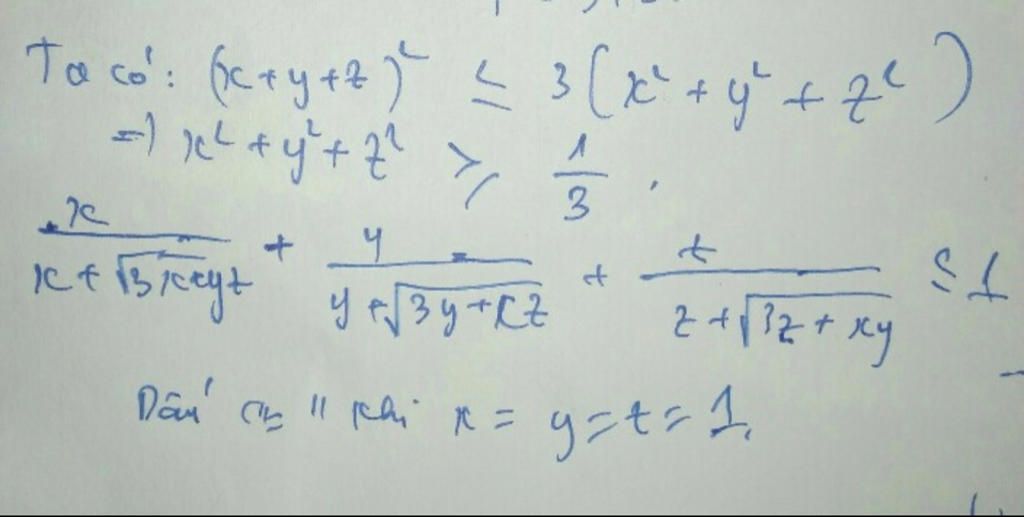 Ta có: (x+y+z)² ≤ 3(x²+y²+z²)
=) x²+y²+z² ≥ 1/3.
x/(x+√(3x+yz)) + y/(y+√(3y+xz)) + z/(z+√(3z+xy)) ≤ 1
Dấu "=" khi x = y = z = 1.